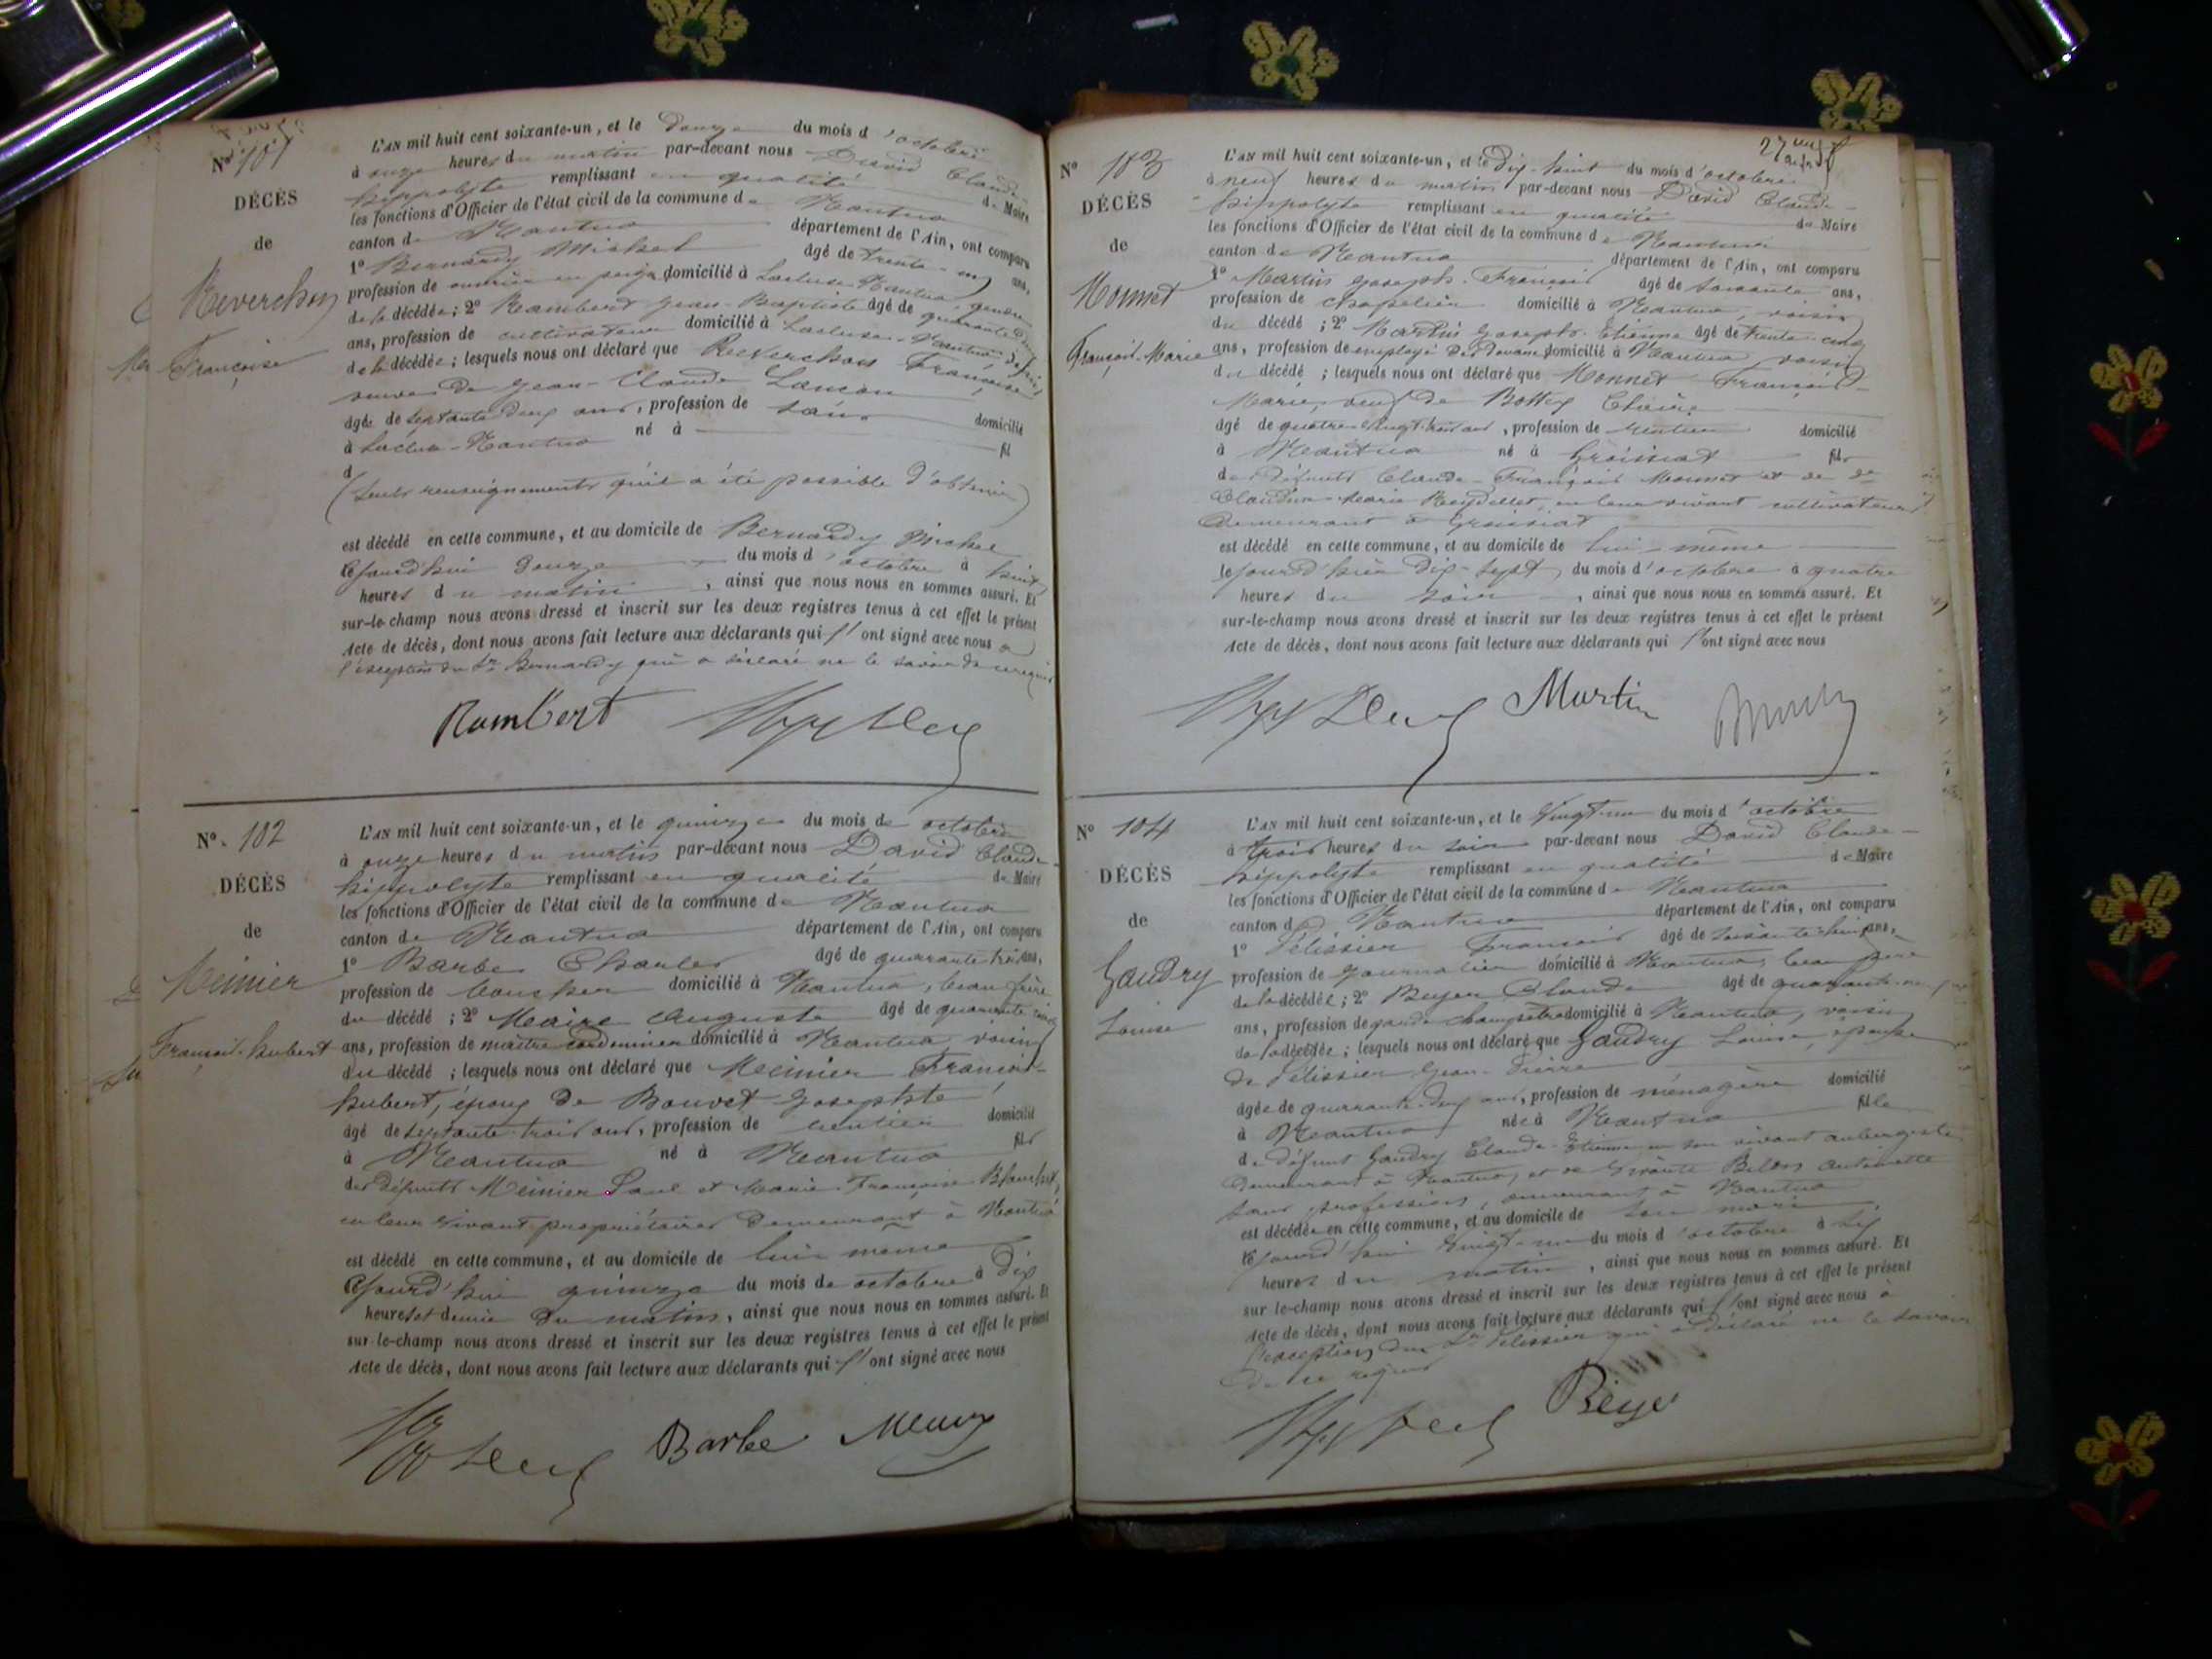 N° 101
DÉCÈS
de
Reverchon
Françoise
L'AN mil huit cent soixante-un, et le douze du mois d'octobre
à onze heures du matin par-devant nous David Claude-
hippolyte remplissant en qualité de Maire
les fonctions d'Officier de l'état civil de la commune de Nantua
canton de Nantua département de l'Ain, ont comparu
1° Bernardy Michel âgé de trente-un ans,
profession de ouvrier en peigne domicilié à Lacluse-Nantua, gendre
de la décédée ; 2° Rambert Jean-Baptiste âgé de quarante
ans, profession de cultivateur domicilié à Lacluse-Nantua
de la décédée ; lesquels nous ont déclaré que Reverchon Françoise
veuve de Jean-Claude Lançon
âgée de septante deux ans, profession de sans domicilié
à Lacluse-Nantua né à fil
d
(seuls renseignements qu'il a été possible d'obtenir)
est décédé en cette commune, et au domicile de Bernardy Michel
cejourd'hui douze du mois d'octobre à huit
heures du matin, ainsi que nous nous en sommes assuré. Et
sur-le-champ nous avons dressé et inscrit sur les deux registres tenus à cet effet le présent
Acte de décès, dont nous avons fait lecture aux déclarants qui l'ont signé avec nous à
l'exception du Sr Bernardy qui a déclaré ne le savoir de ce requis
Rambert
N°. 102
DÉCÈS
de
Meinier
François-hubert
L'AN mil huit cent soixante-un, et le quinze du mois de octobre
à onze heures du matin par-devant nous David Claude-
hippolyte remplissant en qualité de Maire
les fonctions d'Officier de l'état civil de la commune de Nantua
canton de Nantua département de l'Ain, ont comparu
1° Barbe Charles âgé de quarante trois ans,
profession de domicilié à Nantua, beau frère
du décédé ; 2° Maire Auguste âgé de quarante cinq
ans, profession de maître cordonnier domicilié à Nantua voisin
du décédé ; lesquels nous ont déclaré que Meinier François-
hubert, époux de Bouvet Josephte
âgé de septante-trois ans, profession de rentier domicilié
à Nantua né à Nantua fils
des défunts Meinier Paul et Marie-Françoise
en leur vivant propriétaires demeurant à Nantua
est décédé en cette commune, et au domicile de lui même
cejourd'hui quinze du mois de octobre à dix
heures et demie du matin, ainsi que nous nous en sommes assuré. Et
sur-le-champ nous avons dressé et inscrit sur les deux registres tenus à cet effet le présent
Acte de décès, dont nous avons fait lecture aux déclarants qui l'ont signé avec nous
Barbe
N° 103
DÉCÈS
de
Monnet
François-Marie
L'AN mil huit cent soixante-un, et le dix-huit du mois d'octobre
à neuf heures du matin par-devant nous David Claude-
hippolyte remplissant en qualité de Maire
les fonctions d'Officier de l'état civil de la commune de Nantua
canton de Nantua département de l'Ain, ont comparu
1° Martin Joseph-François âgé de soixante ans,
profession de chapelier domicilié à Nantua, voisin
du décédé ; 2° Martin Joseph-Etienne âgé de trente-cinq
ans, profession de employé des douanes domicilié à Nantua, voisin
du décédé ; lesquels nous ont déclaré que Monnet François-
Marie, veuf de Claire
âgé de quatre-vingt-huit ans, profession de rentier domicilié
à Nantua né à Groissiat fils
des défunts Claude-François Monnet et de de
Claudine-Marie Reydellet, en leur vivant cultivateurs
demeurant à Groissiat
est décédé en cette commune, et au domicile de lui-même
le jour d'hier dix-sept du mois d'octobre à quatre
heures du soir, ainsi que nous nous en sommes assuré. Et
sur-le-champ nous avons dressé et inscrit sur les deux registres tenus à cet effet le présent
Acte de décès, dont nous avons fait lecture aux déclarants qui l'ont signé avec nous
Martin
N° 104
DÉCÈS
de
Gaudry
Louise
L'AN mil huit cent soixante-un, et le vingt-un du mois d'octobre
à trois heures du soir par-devant nous David Claude-
hippolyte remplissant en qualité de Maire
les fonctions d'Officier de l'état civil de la commune de Nantua
canton d Nantua département de l'Ain, ont comparu
1° Pélissier François âgé de soixante huit ans,
profession de journalier domicilié à Nantua, beau père
de la décédée ; 2° Beyer Claude âgé de quarante-neuf
ans, profession de garde champêtre domicilié à Nantua, voisin
de la décédée ; lesquels nous ont déclaré que Gaudry Louise, épouse
de Pélissier Jean-Pierre
âgée de quarante-deux ans, profession de ménagère domicilié
à Nantua née à Nantua fille
de défunt Gaudry Claude-Etienne en son vivant aubergiste
demeurant à Nantua, et de vivante Antoinette
sans profession, demeurant à Nantua
est décédée en cette commune, et au domicile de son mari
cejourd'hui vingt-un du mois d'octobre à six
heures du matin, ainsi que nous nous en sommes assuré. Et
sur le-champ nous avons dressé et inscrit sur les deux registres tenus à cet effet le présent
Acte de décès, dont nous avons fait lecture aux déclarants qui l'ont signé avec nous à
l'exception du Sr Pélissier qui a déclaré ne le savoir
de ce requis
Beyer